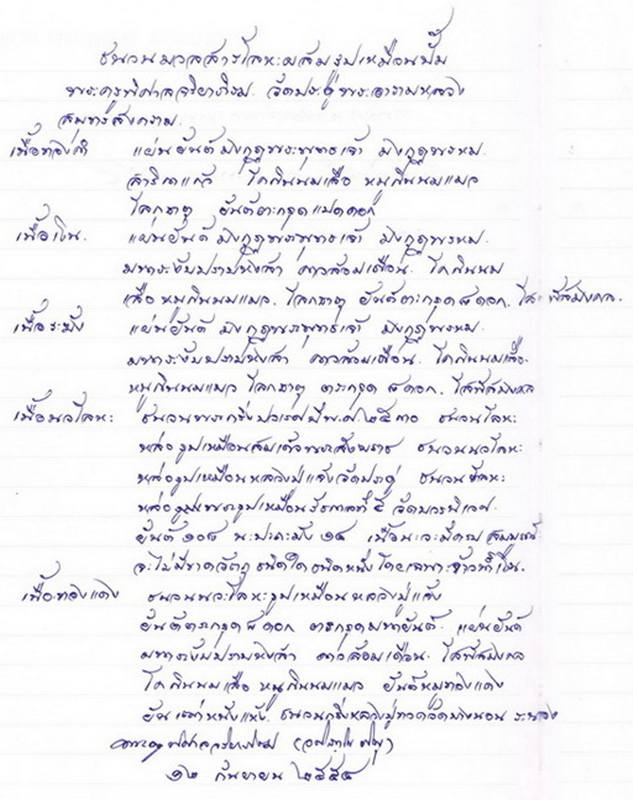 ชนวนมวลสารโลหะผสมรูปเหมือนปั๊ม
พระครูพิศาลจริยาภิรม. วัดประดู่พระอารามหลวง
สมุทรสงคราม.
เนื้อทองคำ แผ่นยันต์ มงกุฎพระพุทธเจ้า มงกุฎพรหม.
สาริกาแก้ว โคกินนมเสือ หนูกินนมแมว
โลกธาตุ ยันต์ตะกรุดแปดดอก
เนื้อเงิน. แผ่นยันต์ มงกุฎพระพุทธเจ้า มงกุฎพรหม.
มหาระงับปราบหงสา ดาวล้อมเดือน. โคกินนม
เสือ หนูกินนมแมว. โลกธาตุ ยันต์ตะกรุด ๘ ดอก.
เนื้อระฆัง แผ่นยันต์ มงกุฎพระพุทธเจ้า มงกุฎพรหม.
มหาระงับปราบหงสา ดาวล้อมเดือน. โคกินนมเสือ.
หนูกินนมแมว โลกธาตุ ตะกรุด ๘ ดอก.
เนื้อนวโลหะ ชนวนพระกริ่งปวเรศ ปี พ.ศ. ๒๕๓๐ ชนวนโลหะ
หล่อรูปเหมือนสมเด็จพระสังฆราช ชนวนนวโลหะ
หล่อรูปเหมือนหลวงปู่แจ้งวัดประดู่ ชนวน
หล่อรูปเหมือนรัชกาลที่ ๕ วัดบวรนิเวศ
ยันต์ ๑๐๘ นะปถมัง ๑๔ เนื้อนวะ
จะไม่มีขาดวัตถุ ชนิดใดชนิดหนึ่ง โดยเฉพาะจ้าวน้ำเงิน.
เนื้อทองแดง ชนวนนวะโลหะรูปเหมือนหลวงปู่แจ้ง
ยันต์ตะกรุด ๘ ดอก ตะกรุดมหายันต์. แผ่นยันต์
มหาระงับปราบหงสา ดาวล้อมเดือน.
โคกินนมเสือ หนูกินนมแมว ยันต์หมูทองแดง
ยันต์เต่าหนังแห้ง. ชนวนกริ่งหลวงปู่ทวด
๑๒ กันยายน ๒๕๕๔